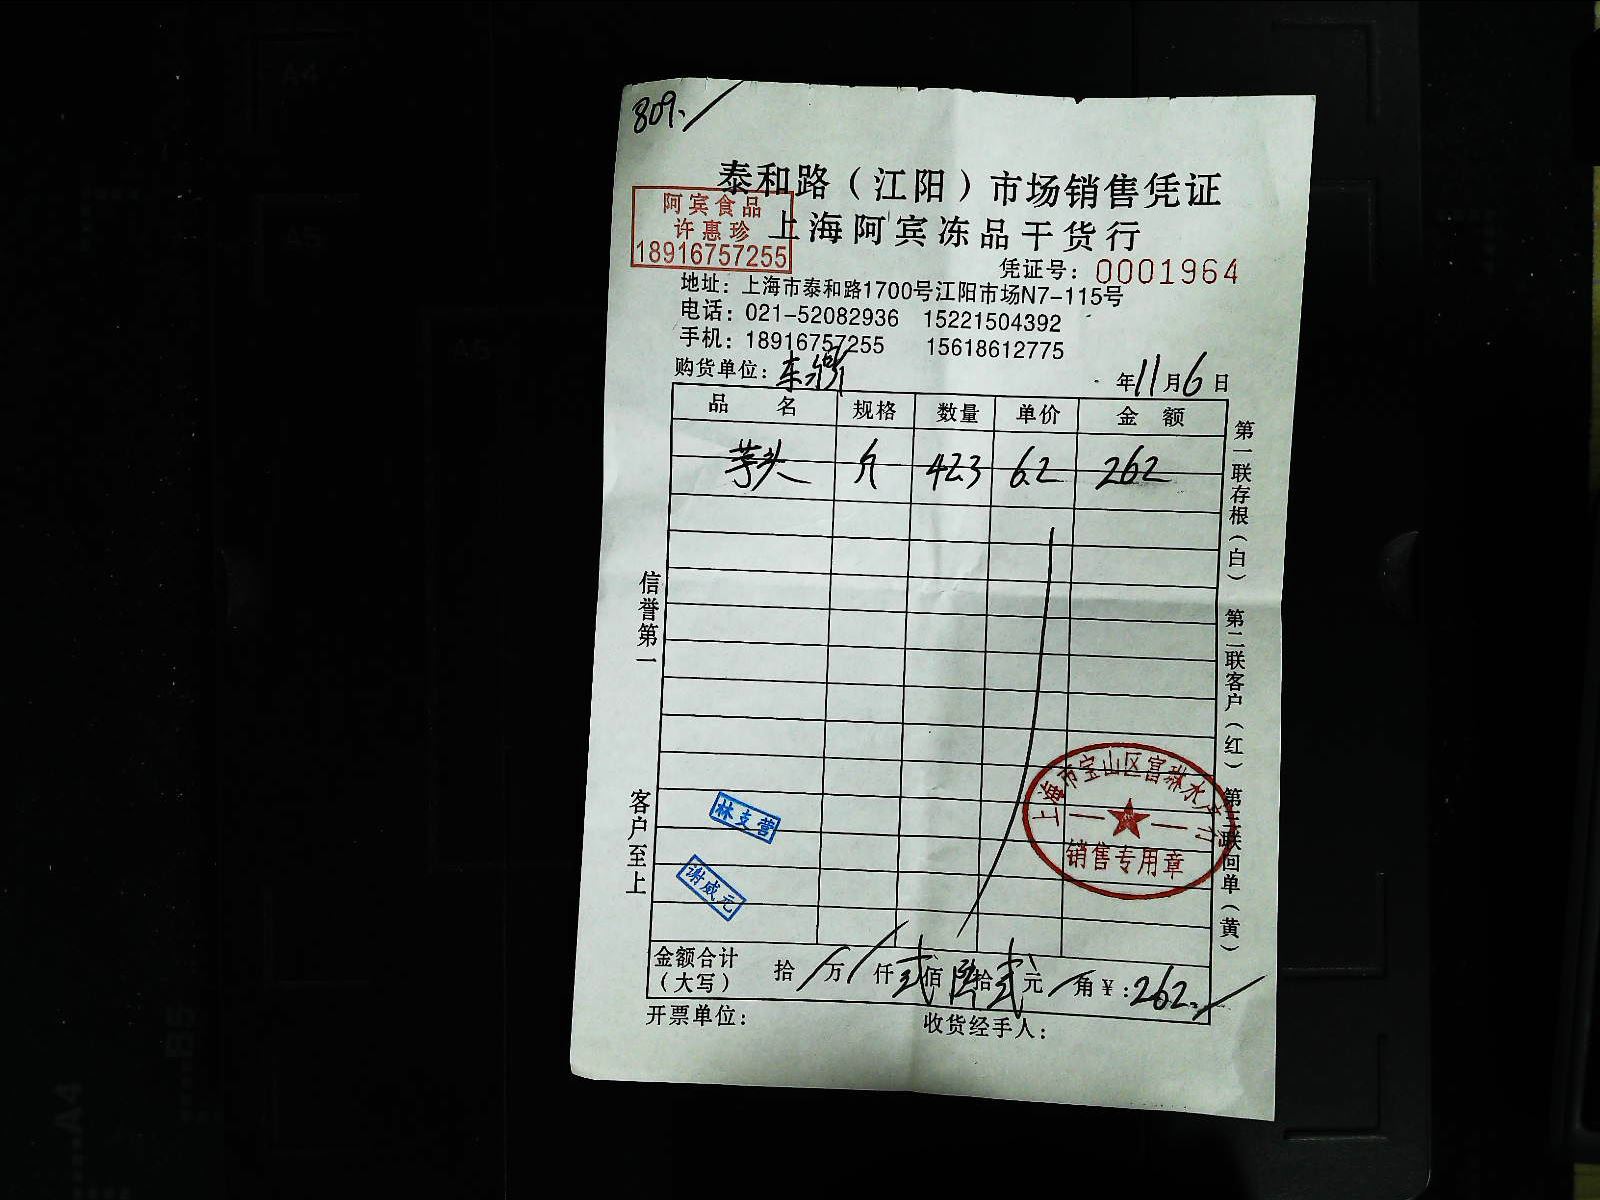 809.
泰和路（江阳）市场销售凭证
阿宾食品
许惠珍
18916757255
上海阿宾冻品干货行
凭证号：0001964
地址：上海市泰和路1700号江阳市场N7-115号
电话：021-52082936 15221504392
手机：18916757255 15618612775
购货单位：
年11月6日
品 名 规格 数量 单价 金 额
芋头 斤 42.3 6.2 262
第一联存根（白） 第二联客户（红） 第三联回单（黄）
信誉第一
客户至上
上海市宝山区富琳水产行
销售专用章
林支营
谢威元
金额合计（大写） 拾 万 仟 贰 佰 陆 拾 贰 元 角 ￥：262
开票单位： 收货经手人：
A4
A5
A5
B5
A4